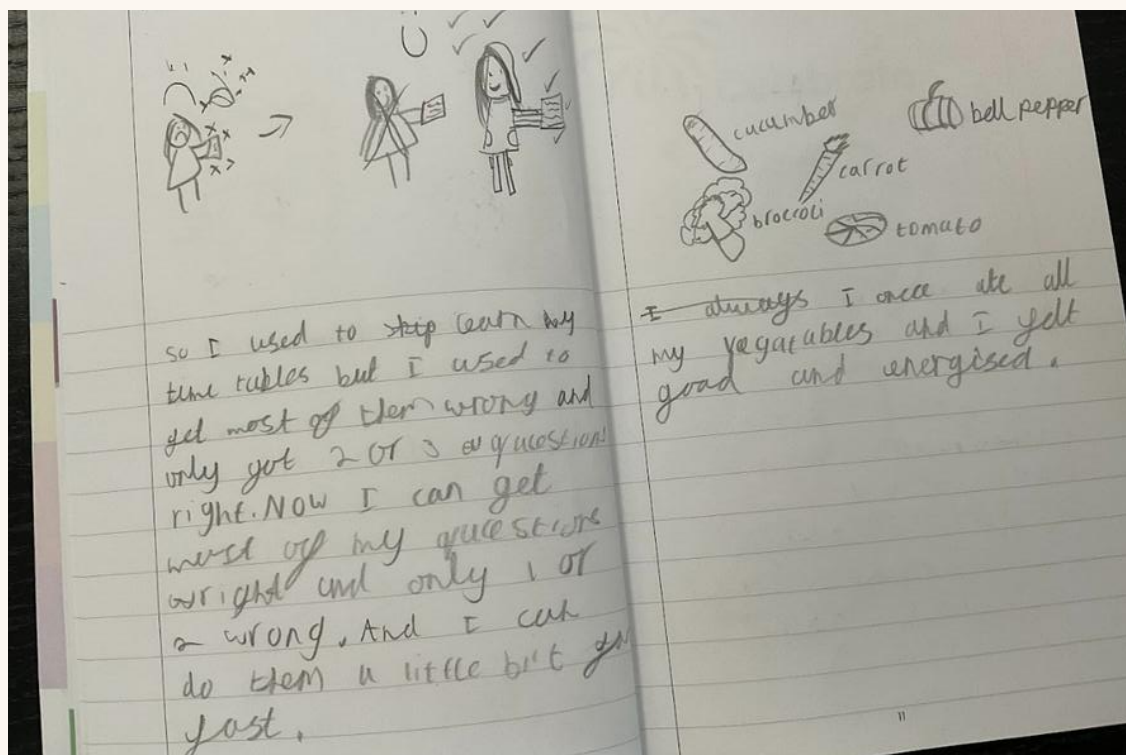 so I used to skip learn my
time tables but I used to
get most of them wrong and
only got 2 or 3 qucestions
right. Now I can get
most of my qucestions
wright and only 1 or
2 wrong. And I can
do them a little bit
fast.
cucumber
bell pepper
carrot
broccoli
tomato
I always I once ate all
my vegatables and I felt
good and energised.
11